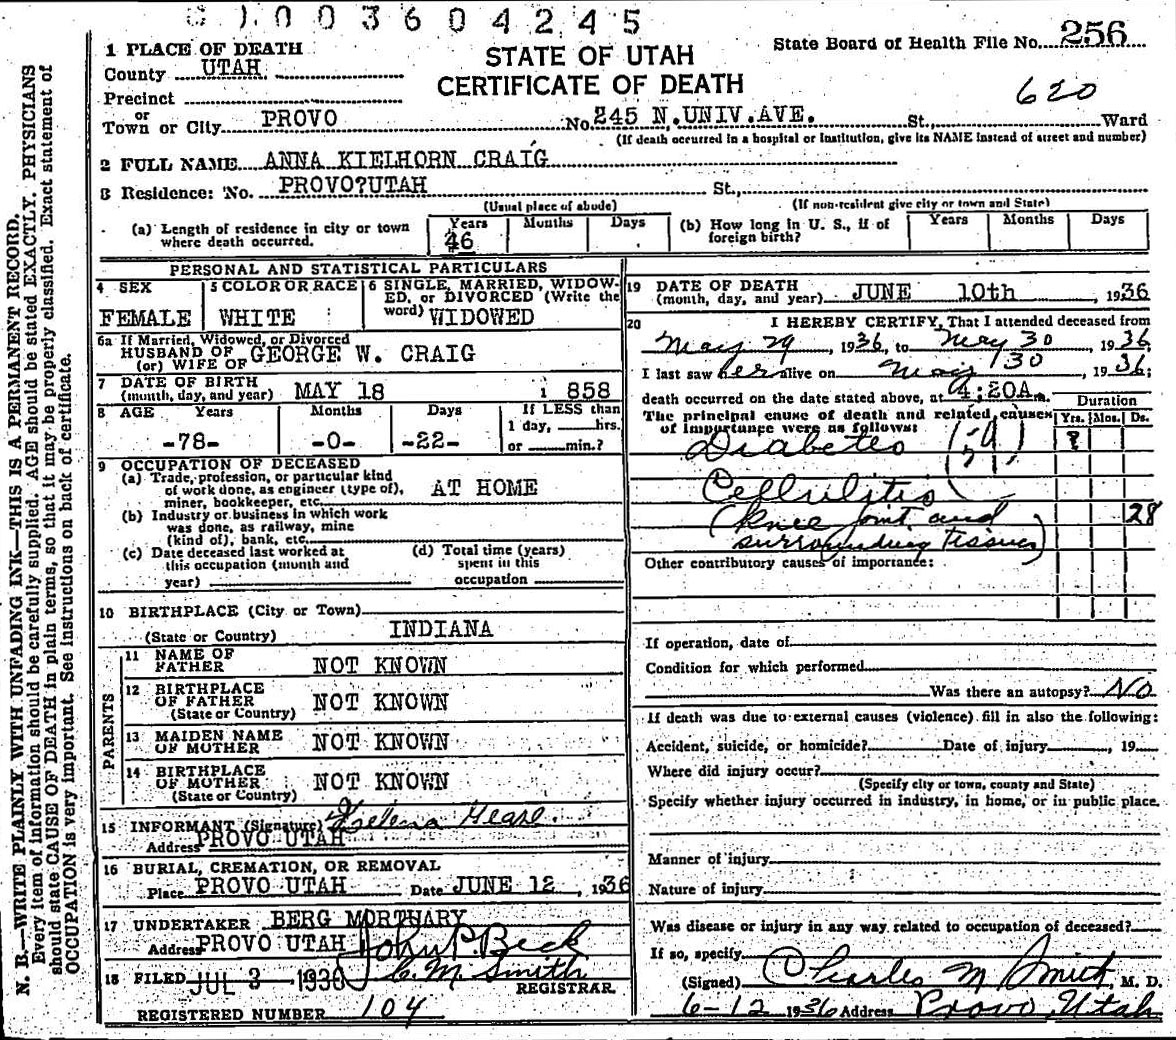 003604245
1 PLACE OF DEATH
County UTAH
Precinct
or
Town or City PROVO
STATE OF UTAH
CERTIFICATE OF DEATH
State Board of Health File No. 256
620
No. 245 N.UNIV.AVE. St., Ward
(If death occurred in a hospital or institution, give its NAME instead of street and number)
2 FULL NAME ANNA KIELHORN CRAIG
3 Residence: No. PROVO?UTAH St.,
(Usual place of abode) (If non-resident give city or town and State)
(a) Length of residence in city or town where death occurred. Years 46 Months Days
(b) How long in U. S., if of foreign birth? Years Months Days
PERSONAL AND STATISTICAL PARTICULARS
4 SEX FEMALE
5 COLOR OR RACE WHITE
6 SINGLE, MARRIED, WIDOW-
ED, or DIVORCED (Write the
word) WIDOWED
6a If Married, Widowed, or Divorced
HUSBAND OF
(or) WIFE OF GEORGE W. CRAIG
7 DATE OF BIRTH
(month, day, and year) MAY 18 1 858
8 AGE Years Months Days If LESS than
1 day, hrs.
-78- -0- -22- or min.?
9 OCCUPATION OF DECEASED
(a) Trade, profession, or particular kind
of work done, as engineer (type of), AT HOME
miner, bookkeeper, etc.
(b) Industry or business in which work
was done, as railway, mine
(kind of), bank, etc.
(c) Date deceased last worked at
this occupation (month and
year)
(d) Total time (years)
spent in this
occupation
10 BIRTHPLACE (City or Town)
(State or Country) INDIANA
PARENTS
11 NAME OF
FATHER NOT KNOWN
12 BIRTHPLACE
OF FATHER NOT KNOWN
(State or Country)
13 MAIDEN NAME
OF MOTHER NOT KNOWN
14 BIRTHPLACE
OF MOTHER NOT KNOWN
(State or Country)
15 INFORMANT (Signature) Helena
Address PROVO UTAH
16 BURIAL, CREMATION, OR REMOVAL
Place PROVO UTAH Date JUNE 12, 1936
17 UNDERTAKER BERG MORTUARY
Address PROVO UTAH John P. Beck
18 FILED JUL 3 - 1936 C. M. Smith
REGISTRAR
REGISTERED NUMBER 104
19 DATE OF DEATH
(month, day, and year) JUNE 10th, 1936
20 I HEREBY CERTIFY, That I attended deceased from
May 29, 1936, to May 30 1936
I last saw her alive on May 30, 1936;
death occurred on the date stated above, at 4:20A m.
The principal cause of death and related causes
of importance were as follows:
Duration
Yrs. Mos. Ds.
Diabetes ?
Cellulitis
(knee joint and 28
surrounding tissues)
Other contributory causes of importance:
If operation, date of
Condition for which performed
Was there an autopsy? No
If death was due to external causes (violence) fill in also the following:
Accident, suicide, or homicide? Date of injury, 19
Where did injury occur?
(Specify city or town, county and State)
Specify whether injury occurred in industry, in home, or in public place.
Manner of injury
Nature of injury
Was disease or injury in any way related to occupation of deceased?
If so, specify
(Signed) Charles M Smith, M. D.
6-12 1936 Address Provo, Utah
N. B.—WRITE PLAINLY WITH UNFADING INK—THIS IS A PERMANENT RECORD.
Every item of information should be carefully supplied. AGE should be stated EXACTLY. PHYSICIANS
should state CAUSE OF DEATH in plain terms, so that it may be properly classified. Exact statement of
OCCUPATION is very important. See instructions on back of certificate.